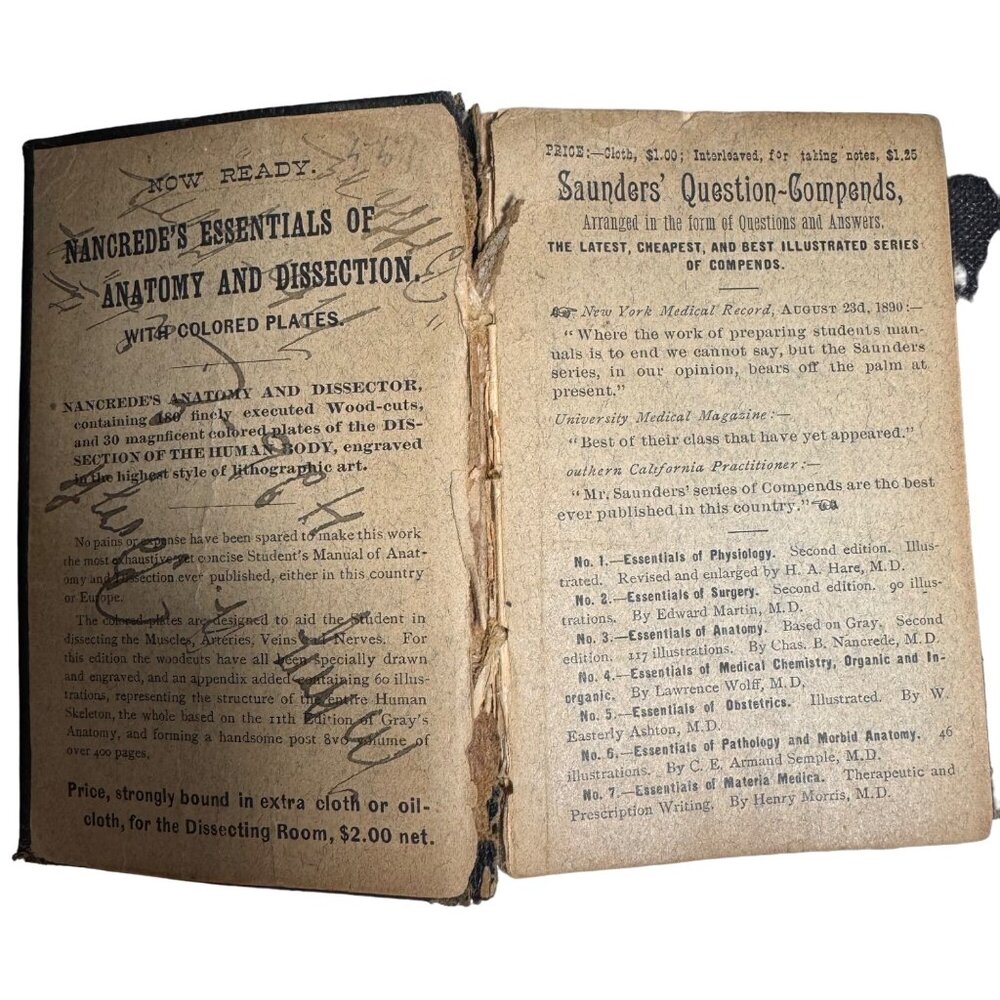 NOW READY.
NANCREDE'S ESSENTIALS OF
ANATOMY AND DISSECTION.
WITH COLORED PLATES.
NANCREDE'S ANATOMY AND DISSECTOR,
containing 180 finely executed Wood-cuts,
and 30 magnficent colored plates of the DIS-
SECTION OF THE HUMAN BODY, engraved
in the highest style of lithographic art.
No pains or expense have been spared to make this work
the most exhaustive yet concise Student's Manual of Anat-
omy and Dissection ever published, either in this country
or Europe.
The colored plates are designed to aid the Student in
dissecting the Muscles, Arteries, Veins and Nerves. For
this edition the woodcuts have all been specially drawn
and engraved, and an appendix added containing 60 illus-
trations, representing the structure of the entire Human
Skeleton, the whole based on the 11th Edition of Gray's
Anatomy, and forming a handsome post 8vo volume of
over 400 pages.
Price, strongly bound in extra cloth or oil-
cloth, for the Dissecting Room, $2.00 net.
PRICE:—Cloth, $1.00; Interleaved, for taking notes, $1.25
Saunders' Question-Compends,
Arranged in the form of Questions and Answers.
THE LATEST, CHEAPEST, AND BEST ILLUSTRATED SERIES
OF COMPENDS.
☞ New York Medical Record, AUGUST 23d, 1890:—
"Where the work of preparing students man-
uals is to end we cannot say, but the Saunders
series, in our opinion, bears off the palm at
present."
University Medical Magazine:—
"Best of their class that have yet appeared."
outhern California Practitioner:—
"Mr. Saunders' series of Compends are the best
ever published in this country." ☜
No. 1.—Essentials of Physiology. Second edition. Illus-
trated. Revised and enlarged by H. A. Hare, M.D.
No. 2.—Essentials of Surgery. Second edition. 90 illus-
trations. By Edward Martin, M.D.
No. 3.—Essentials of Anatomy. Based on Gray. Second
edition. 117 illustrations. By Chas. B. Nancrede, M.D.
No. 4.—Essentials of Medical Chemistry, Organic and In-
organic. By Lawrence Wolff, M.D.
No. 5.—Essentials of Obstetrics. Illustrated. By W.
Easterly Ashton, M.D.
No. 6.—Essentials of Pathology and Morbid Anatomy. 46
illustrations. By C. E. Armand Semple, M.D.
No. 7.—Essentials of Materia Medica. Therapeutic and
Prescription Writing. By Henry Morris, M.D.